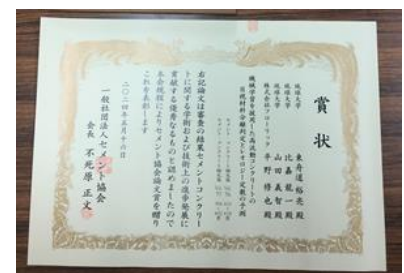 賞状
琉球大学 東舟道裕亮殿
琉球大学 比嘉龍一殿
琉球大学 山田義智殿
株式会社フローリック 平野修也殿
機械学習を援用した高流動コンクリートの
目視材料分離判定とレオロジー定数の予測
右記論文は審査の結果セメントコンクリー
トに関する学術および技術上の進歩発展に
貢献する優秀なるものと認めましたので
本会規程によりセメント協会論文賞を贈り
これを表彰します
二〇二四年五月十六日
一般社団法人セメント協会
会長 不死原正文